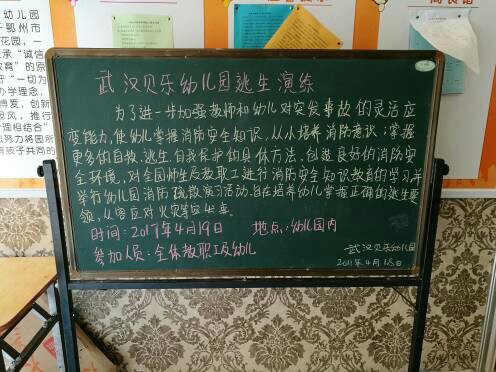 幼儿园
于鄂州市
花园,
承“诚信
教育”的原
守“一切为
办学理念,
博爱,创新
风,推行
管理相结合”
努力将园所
有孩子共同的
武汉贝乐幼儿园逃生演练
为了进一步加强教师和幼儿对突发事故的灵活应
变能力,使幼儿掌握消防安全知识,从小培养消防意识;掌握
更多的自救、逃生、自我保护的具体方法,创造良好的消防安
全环境,对全园师生员教职工进行消防安全知识教育的学习,并
举行幼儿园消防疏散演习活动,旨在培养幼儿掌握正确的逃生要
领,从容应对火灾等突发。
时间:2017年4月19日 地点:幼儿园内
参加人员:全体教职工及幼儿
武汉贝乐幼儿园
2017年4月18日